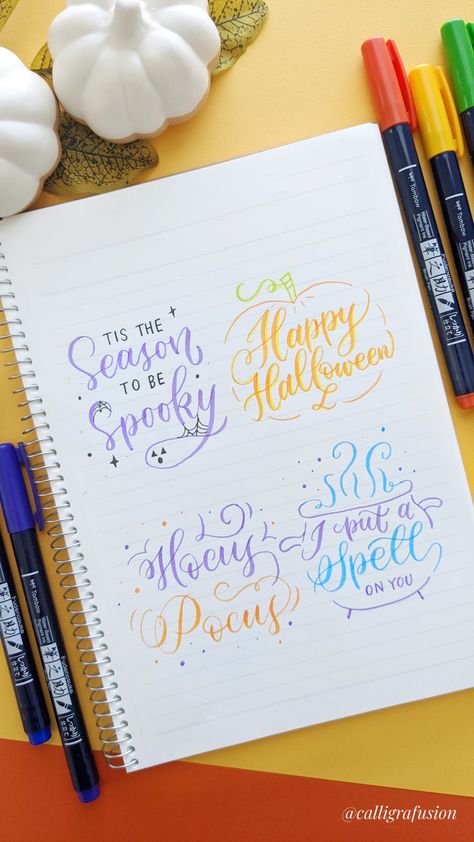 TIS THE
Season
TO BE
Spooky
Happy
Halloween
Hocus
Pocus
I put a
Spell
ON YOU
Tombow
Tombow
Tombow
@calligrafusion